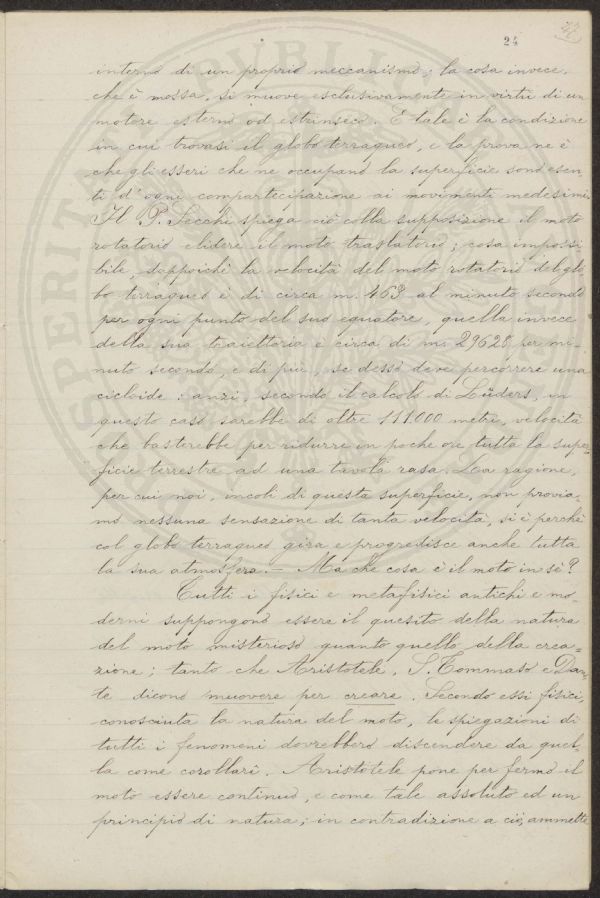 24
interno di un proprio meccanismo; la cosa invece,
che è mossa, si muove esclusivamente in virtù di un
motore esterno od estrinseco. E tale è la condizione
in cui trovasi il globo terraqueo, e la prova ne è
che gli esseri che ne occupano la superficie sono esen-
ti d'ogni compartecipazione ai movimenti medesimi.
Il P. Secchi spiega ciò colla supposizione il moto
rotatorio elidere il moto traslatorio; cosa impossi
bile, dappoichè la velocità del moto rotatorio del glo
bo terraqueo è di circa m. 463 al minuto secondo
per ogni punto del suo equatore, quella invece
della sua traiettoria è circa di m. 29628 per mi-
nuto secondo, e di più, se desso deve percorrere una
cicloide: anzi, secondo il calcolo di Lüders, in
questo caso sarebbe di oltre 111.000 metri, velocità
che basterebbe per ridurre in poche ore tutta la super-
ficie terrestre ad una tavola rasa. La ragione,
per cui noi, incoli di questa superficie, non provia-
mo nessuna sensazione di tanta velocità, si è perchè
col globo terraqueo gira e progredisce anche tutta
la sua atmosfera. — Ma che cosa è il moto in sè?
Tutti i fisici e metafisici antichi e mo-
derni suppongono essere il quesito della natura
del moto misterioso quanto quello della crea=
zione; tanto che Aristotele, S. Tommaso e Dan-
te dicono muovere per creare. Secondo essi fisici,
conosciuta la natura del moto, le spiegazioni di
tutti i fenomeni dovrebbero discendere da quel-
la come corollari. Aristotele pone per fermo il
moto essere continuo, e come tale assoluto ed un
principio di natura; in contradizione a ciò, ammette
SPERITA PVBLI